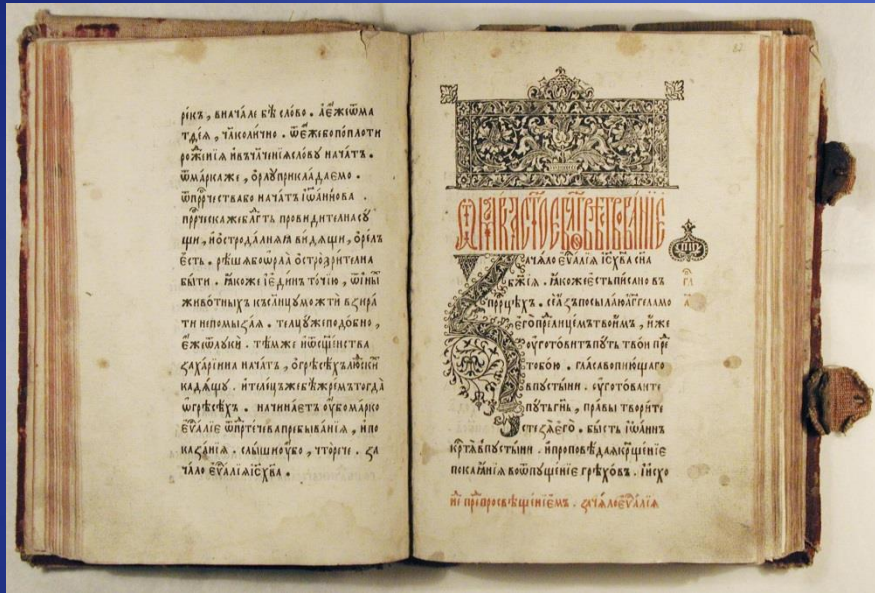 ре́къ, внача́ле бѣ̀ сло́во. а҆є҆́жеѿма
тѳе́ѧ, ча́колично. ѿє҆́жебопоплоти
роже́нїѧ и҆въчл҃че́нїѧсло́ву нача́тъ.
ѿма́ркаже, ѻ҆рлу̀прикла́даемо.
ѿпррⷪ҇чествабо нача́тъ і҆ѡа́ннова
прⷪ҇ческажебл҃гть провиди́телнасу́
щи, и҆ѻ҆строда́лнаѧ ви́дѧщи, ѻ҆ре́лъ
є҆́сть. рѣ́шѧбоѻ҆рла̀ ѻ҆строзри́телна
бы́ти. ꙗ҆́коже і҆є҆ди́нъ то́чїю, ѿи҆ны́
живо́тныхъ къслн҃цу мо́жти взира́
ти непомыза́ѧ. теⷧ҇цу́жеподо́бно,
є҆́жеѿлукѝ. тѣ́мже и҆ѿсщ҃е́нства
заха́рїина нача́тъ, ѻ҆грѣсѣ́хъ лю́скⷯи
кадѧ́щу. и҆теле́цъжебѣ̀жре́мътогда̀
ѡ҆грѣсѣ́хъ. начина́етъ ᲂу҆̀бома́рко
є҆ѵⷢ҇а́лїе ѿпрⷣте́чевапребыва́нїѧ, и҆по
каза́нїѧ. слы́шиᲂу҆̀бо, что́рече. за
ча́ло є҆ѵⷢ҇а́лїѧі҆сх҃ва.
ача́ло є҆ѵⷢ҇а́лїѧ і҆сх҃ва сн҃а
бж҃їѧ. ꙗ҆́коже є҆́сть пи́сано въ
прⷪ҇рцѣхъ. сѐа҆́зъ посыла́ю а҆́гг҃ла мо
є҆го̀ преⷣлице́мъ твои́мъ, и҆́же
ᲂу҆гото́витъ пу́ть тво́и преⷣ
тобо́ю. гла́съ вопїю́щаго
впусты́ни. ᲂу҆гото́ваите
пу́ть гⷭ҇нь, пра́вы твори́те
стезѧ̀ є҆го̀. бы́сть і҆ѡа́ннъ
крⷭ҇тѧ̀ впусты́ни. и҆проповѣ́даѧ крⷳ҇ще́нїе
покаѧ́нїѧ воѿпуще́нїе грѣхо́въ. и҆и҆схо
нⷣе́ преⷣ просвѣще́нїемъ. зача́лоє҆ѵⷢ҇а́лїѧ